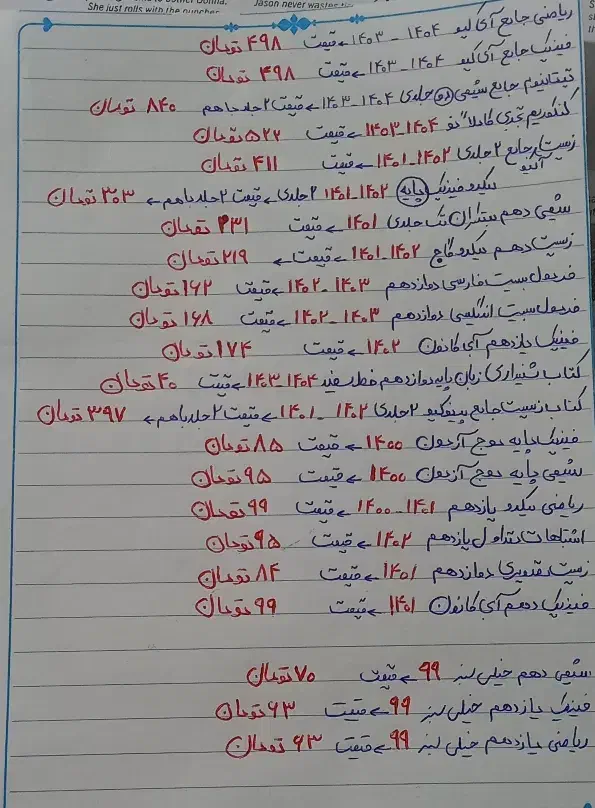 She just rolls with the
Jason never
ریاضی جامع آی کیو ۱۴۰۴ - ۱۴۰۳ ← قیمت ۴۹۸ تومان
فیزیک جامع آی کیو ۱۴۰۴ - ۱۴۰۳ ← قیمت ۴۹۸ تومان
تیتانیوم جامع شیمی (دو) جلدی ۱۴۰۴ - ۱۴۰۳ ← قیمت ۲ جلد باهم ۸۴۰ تومان
کنکوریوم تجربی کاملا" نو ۱۴۰۴-۱۴۰۳ ← قیمت ۵۲۲ تومان
زیست جامع ۲ جلدی ۱۴۰۲ - ۱۴۰۱ ← قیمت ۴۱۱ تومان
آی کیو
میکرو فیزیک پایه ۱۴۰۲ - ۱۴۰۱ ۲ جلدی ← قیمت ۲ جلد باهم ← ۳۰۳ تومان
شیمی دهم مبتکران تک جلدی ۱۴۰۱ ← قیمت ۲۳۱ تومان
زیست دهم میکرو گاج ۱۴۰۲ - ۱۴۰۱ ← قیمت ← ۲۱۹ تومان
فرمول بیست فارسی دوازدهم ۱۴۰۳ - ۱۴۰۲ ← قیمت ۱۶۲ تومان
فرمول بیست انگلیسی دوازدهم ۱۴۰۳ - ۱۴۰۲ ← قیمت ۱۶۸ تومان
فیزیک یازدهم آبی کانون ۱۴۰۲ ← قیمت ۱۷۴ تومان
کتاب شنیداری زبان پایه دوازدهم خط سفید ۱۴۰۴ - ۱۴۰۳ ← قیمت ۴۰ تومان
کتاب زیست جامع بینوکیو ۲ جلدی ۱۴۰۲ - ۱۴۰۱ ← قیمت ۲ جلد باهم ← ۳۹۷ تومان
فیزیک پایه موج آزمون ۱۴۰۰ ← قیمت ۸۵ تومان
شیمی پایه موج آزمون ۱۴۰۰ ← قیمت ۹۵ تومان
ریاضی میکرو یازدهم ۱۴۰۱ - ۱۴۰۰ ← قیمت ۹۹ تومان
اشتباهات متداول یازدهم ۱۴۰۲ ← قیمت ۹۵ تومان
زیست تصویری دوازدهم ۱۴۰۱ ← قیمت ۸۴ تومان
فیزیک دهم آبی کانون ۱۴۰۱ ← قیمت ۹۹ تومان
شیمی دهم خیلی سبز ۹۹ ← قیمت ۷۰ تومان
فیزیک یازدهم خیلی سبز ۹۹ ← قیمت ۶۳ تومان
ریاضی یازدهم خیلی سبز ۹۹ ← قیمت ۶۳ تومان